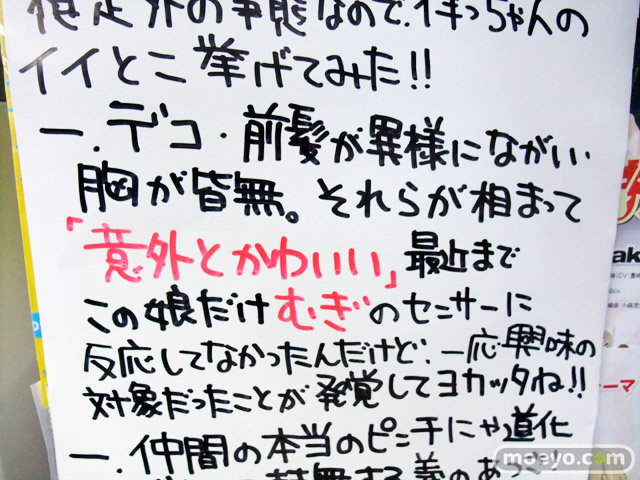 想定外の事態なので、律っちゃんの
イイとこ挙げてみた!!
一.デコ・前髪が異様にながい
胸が皆無。それらが相まって
「意外とかわいい」最近まで
この娘だけむぎのセンサーに
反応してなかったんだけど、一応・興味の
対象だったことが発覚してヨカッタね!!
一.仲間の本当のピンチにゃ道化
義のあつさ!
moeyo.com
ーマ